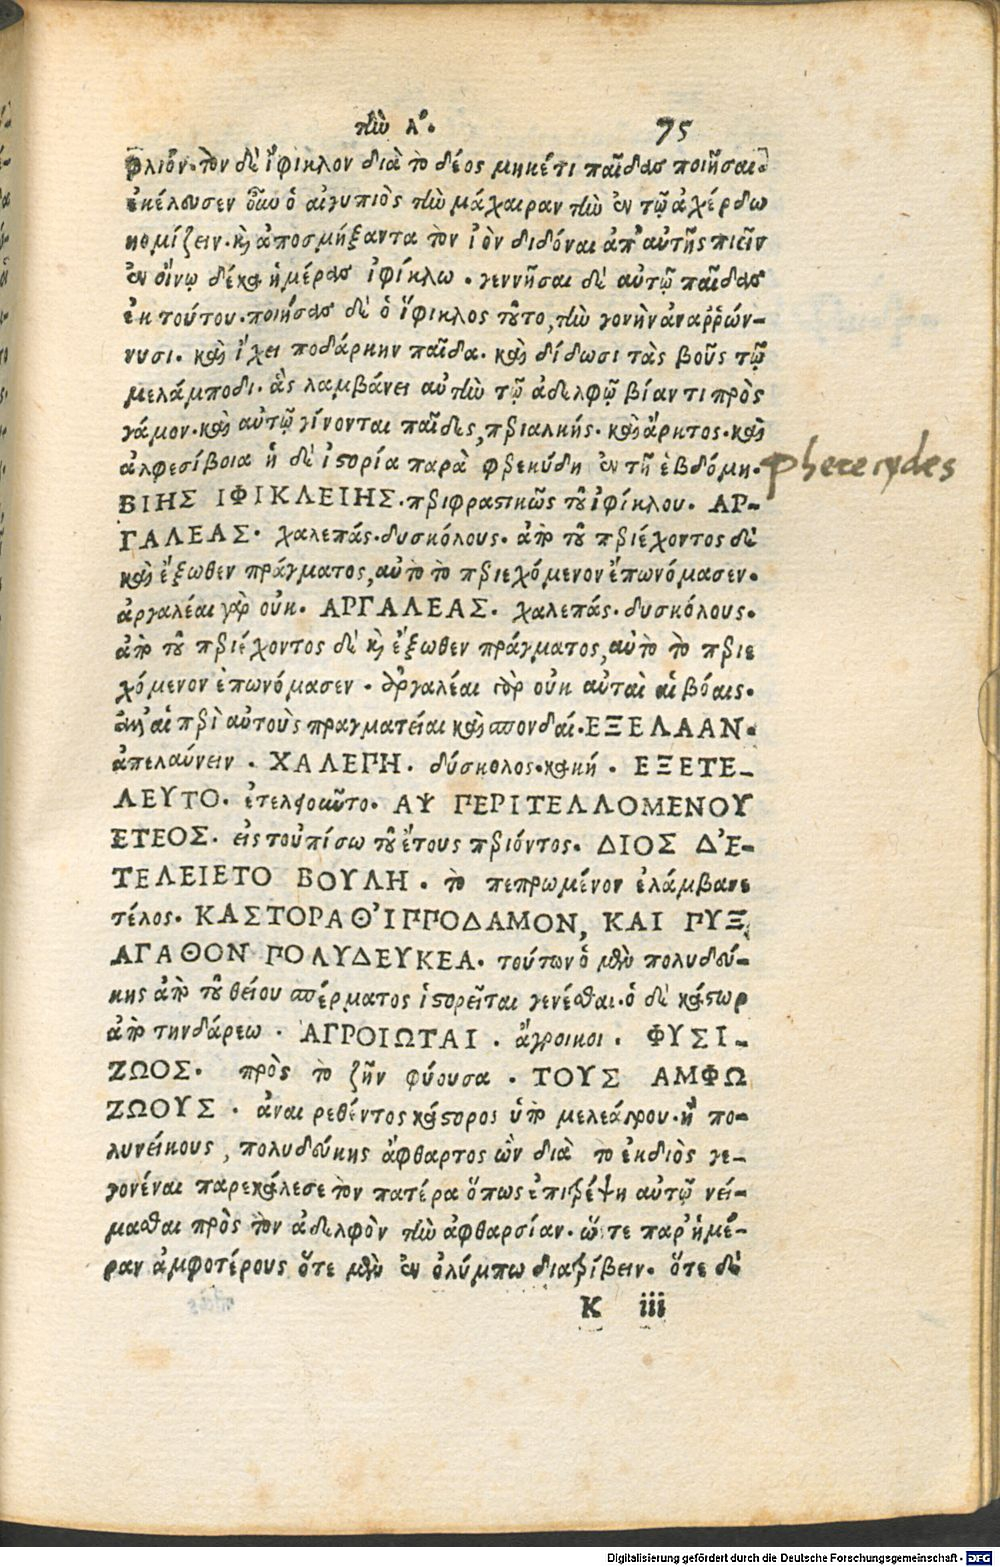 τὴν Λ. 75
φλιόν. τὸν δὲ ἴφικλον διὰ τὸ δέος μηκέτι παῖδας ποιῆσαι.
ἐκέλευσεν οὖν ὁ αἰγυπιὸς τὴν μάχαιραν τὴν ἐν τῷ ἀχέρδω
κομίζειν. καὶ ἀποσμήξαντα τὸν ἰὸν διδόναι ἀπ' αὐτῆς πιεῖν
ἐν οἴνῳ δέκα ἡμέρας ἰφίκλω. γεννῆσαι δὲ αὐτῷ παῖδας
ἐκ τούτου. ποιήσας δὲ ὁ ἴφικλος τοῦτο, τὴν γονὴν ἀναῤῥών-
νυσι. καὶ ἴχει ποδάρκην παῖδα. καὶ δίδωσι τὰς βοῦς τῷ
μελάμποδι. ἃς λαμβάνει αὐτὴν τῷ ἀδελφῷ βίαντι πρὸς
γάμον. καὶ αὐτῷ γίνονται παῖδες, περιαλκής. καὶ ἄρητος. καὶ
ἀλφεσίβοια ἡ δὲ ἱστορία παρὰ φερεκύδη ἐν τῇ ἑβδόμη.
pherecydes
ΒΙΗΣ ΙΦΙΚΛΕΙΗΣ. περιφραστικῶς τοῦ ἰφίκλου. ΑΡ-
ΓΑΛΕΑΣ. χαλεπάς. δυσκόλους. ἀπὸ τοῦ περιέχοντος δὲ
καὶ ἔξωθεν πράγματος, αὐτὸ τὸ περιεχόμενον ἐπωνόμασεν.
ἀργαλέαι γὰρ οὐκ. ΑΡΓΑΛΕΑΣ. χαλεπάς. δυσκόλους.
ἀπὸ τοῦ περιέχοντος δὲ καὶ ἔξωθεν πράγματος, αὐτὸ τὸ περιε
χόμενον ἐπωνόμασεν. ἀργαλέαι γὰρ οὐκ αὐταὶ αἱ βόαις.
ἀλλ' αἱ περὶ αὐτοὺς πραγματείαι καὶ σπονδαί. ΕΞΕΛΑΑΝ.
ἀπελαύνειν. ΧΑΛΕΠΗ. δύσκολος. κακή. ΕΞΕΤΕ-
ΛΕΥΤΟ. ἐτελφοιοῦτο. ΑΨ ΠΕΡΙΤΕΛΛΟΜΕΝΟΥ
ΕΤΕΟΣ. εἰς τοὐπίσω τοῦ ἔτους περιόντος. ΔΙΟΣ Δ'Ε-
ΤΕΛΕΙΕΤΟ ΒΟΥΛΗ. τὸ πεπρωμένον ἐλάμβανε
τέλος. ΚΑΣΤΟΡΑ Θ'ΙΠΠΟΔΑΜΟΝ, ΚΑΙ ΠΥΞ
ΑΓΑΘΟΝ ΠΟΛΥΔΕΥΚΕΑ. τούτων ὁ μὲν πολυδεύ-
κης ἀπὸ τοῦ θείου σπέρματος ἱστορεῖται γενέσθαι. ὁ δὲ κάστωρ
ἀπὸ τηνδάρεω. ΑΓΡΟΙΩΤΑΙ. ἄγροικοι. ΦΥΣΙ-
ΖΩΟΣ. πρὸς τὸ ζῆν φύουσα. ΤΟΥΣ ΑΜΦΩ
ΖΩΟΥΣ. ἀναιρεθέντος κάστορος ὑπὸ μελεάγρου. ἢ πο-
λυνείκους, πολυδεύκης ἄφθαρτος ὢν διὰ τὸ ἐκ διὸς γε-
γονέναι παρεκάλεσε τὸν πατέρα ὅπως ἐπιτρέψη αὐτῷ νεί-
μασθαι πρὸς τὸν ἀδελφὸν τὴν ἀφθαρσίαν. ὥστε παρ' ἡμέ-
ραν ἀμφοτέρους ὅτε μὲν ἐν ὀλύμπω διατρίβειν. ὅτε δὲ
K iii
Digitalisierung gefördert durch die Deutsche Forschungsgemeinschaft - DFG